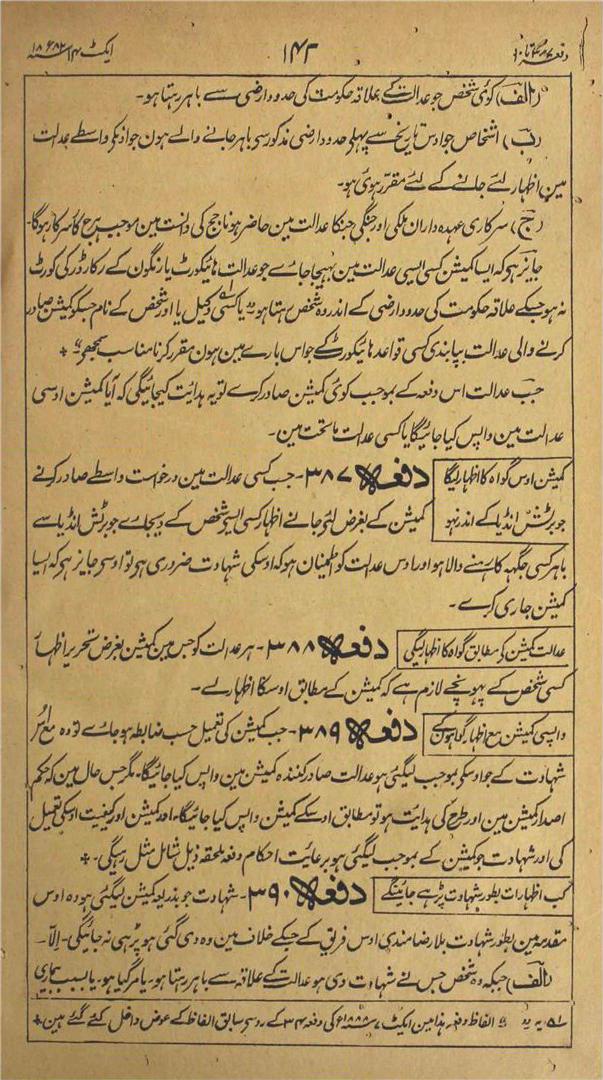 ایکٹ ۱۴ سنہ ۱۸۸۲ع ۱۴۳ دفعہ ۳۸۷ تا ۳۹۰
(الف) کوئی شخص جو عدالت کے علاقہ حکومت کی حدود ارضی سے باہر رہتا ہو۔
(ب) اشخاص جو اوس تاریخ سے پہلے حدود ارضی مذکور سے باہر جانے والے ہون جو اونکی واسطے عدالت
مین اظہار لئے جانے کے لئے مقرر ہوئی ہو۔
(ج) سرکاری عہدہ داران ملکی اور جنگی جنکا عدالت مین حاضر ہونا جج کی دانست مین موجب ہرج کار سرکار ہوگا۔
جائز ہو کہ ایسا کمیشن کسی ایسی عدالت مین بھیجا جاے جو عدالت ہائیکورٹ یا رنگون کے رکارڈر کی کورٹ
نہ ہو جسکے علاقہ حکومت کی حدود ارضی کے اندر وہ شخص رہتا ہو یا کسی وکیل یا اور شخص کے نام جسکو کمیشن صادر
کرنے والی عدالت بپابندی کسی قواعد ہائیکورٹ کے جو اس بارے مین ہون مقرر کرنا مناسب سمجھے
جب عدالت اس دفعہ کے بموجب کوئی کمیشن صادر کرے تو یہ ہدایت کیجائیگی کہ آیا کمیشن اوسی
عدالت مین واپس کیا جائیگا یا کسی عدالت ماتحت مین۔
کمیشن اوس گواہ کا اظہار لیگا دفعہ ۳۸۷۔ جب کسی عدالت مین درخواست واسطے صادر کرنے
جو برٹش انڈیا کے اندر نہو کمیشن کے بغرض لئے جانے اظہار کسی ایسے شخص کے دیجاے جو برٹش انڈیا سے
باہر کسی جگہہ کا رہنے والا ہو اور اوس عدالت کو اطمینان ہو کہ اوسکی شہادت ضروری ہو تو اوسے جایز ہو کہ ایسا
کمیشن جاری کرے۔
عدالت کمیشن کے مطابق گواہ کا اظہار لیگی دفعہ ۳۸۸۔ ہر عدالت کو جس مین کمیشن بغرض تحریر اظہار
کسی شخص کے پہونچے لازم ہے کہ کمیشن کے مطابق اوسکا اظہار لے۔
واپسی کمیشن مع اظہار گواہون کے دفعہ ۳۸۹۔ جب کمیشن کی تعمیل حسب ضابطہ ہو جاے تو وہ مع اُس
شہادت کے جو اوسکے بموجب لیگئی ہو عدالت صادر کنندہ کمیشن مین واپس کیا جائیگا۔ مگر جس حال مین کہ حکم
اصدار کمیشن مین اور طرح کی ہدایت ہو تو مطابق اوسکے کمیشن واپس کیا جائیگا۔ اور کمیشن اور کیفیت اوسکی تعمیل
کی اور شہادت جو کمیشن کے بموجب لیگئی ہو برعایت احکام دفعہ ملحقہ ذیل شامل مثل رہیگی۔
کب اظہارات بطور شہادت پڑہے جائینگے دفعہ ۳۹۰۔ شہادت جو بذریعہ کمیشن لیگئی ہو وہ اوس
مقدمہ مین بطور شہادت بلا رضامندی اوس فریق کے جسکے خلاف مین وہ دی گئی ہو پڑہی نہ جائیگی۔ اِلّا۔
(الف) جبکہ وہ شخص جس نے شہادت دی ہو عدالت کے علاقہ سے باہر رہتا ہو۔ یا مر گیا ہو۔ یا بسبب بیماری
الفاظ دفعہ ہذا مین ایکٹ ۷ سنہ ۱۸۸۸ع کی دفعہ ۳۴ کے رو سے سابق الفاظ کے عوض داخل کئے گئے ہین